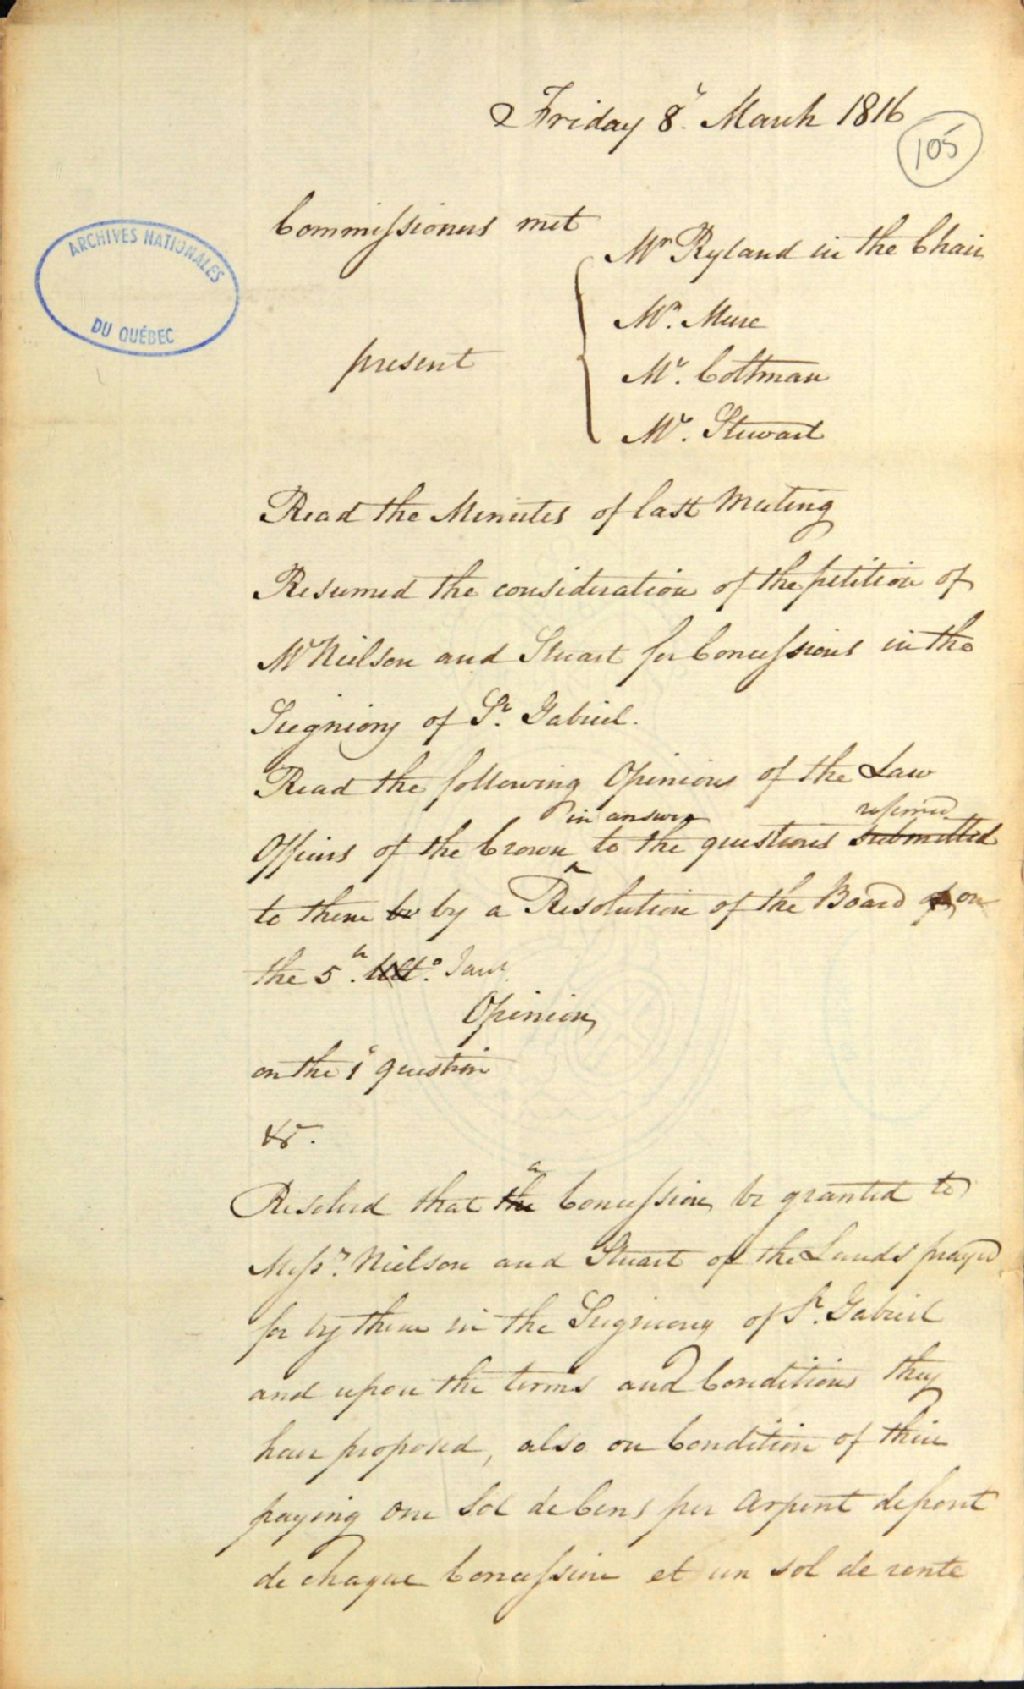 Friday 8. March 1816
105
Commissioners met
Mr Ryland in the Chair
ARCHIVES NATIONALES
DU QUÉBEC
Mr. Mure
present
Mr. Coltman
Mr. Stewart
Read the Minutes of last Meeting
Resumed the consideration of the petition of
Mr Neilson and Stuart for Concessions in the
Seigniory of St. Gabriel.
Read the following Opinions of the Law
in answer referred
Officers of the Crown to the questions submitted
to them by by a Resolution of the Board of on
the 5th. Ulto. Jany
Opinion,
on the 1t question
&c.
a
Resolved that the Concession be granted to
Messrs. Neilson and Stuart of the Lands prayed
for by them in the Seigniory of St. Gabriel
and upon the terms and Conditions they
have proposed, also on Condition of their
paying one Sol de Cens per Arpent de front
de chaque Concession et un sol de rente